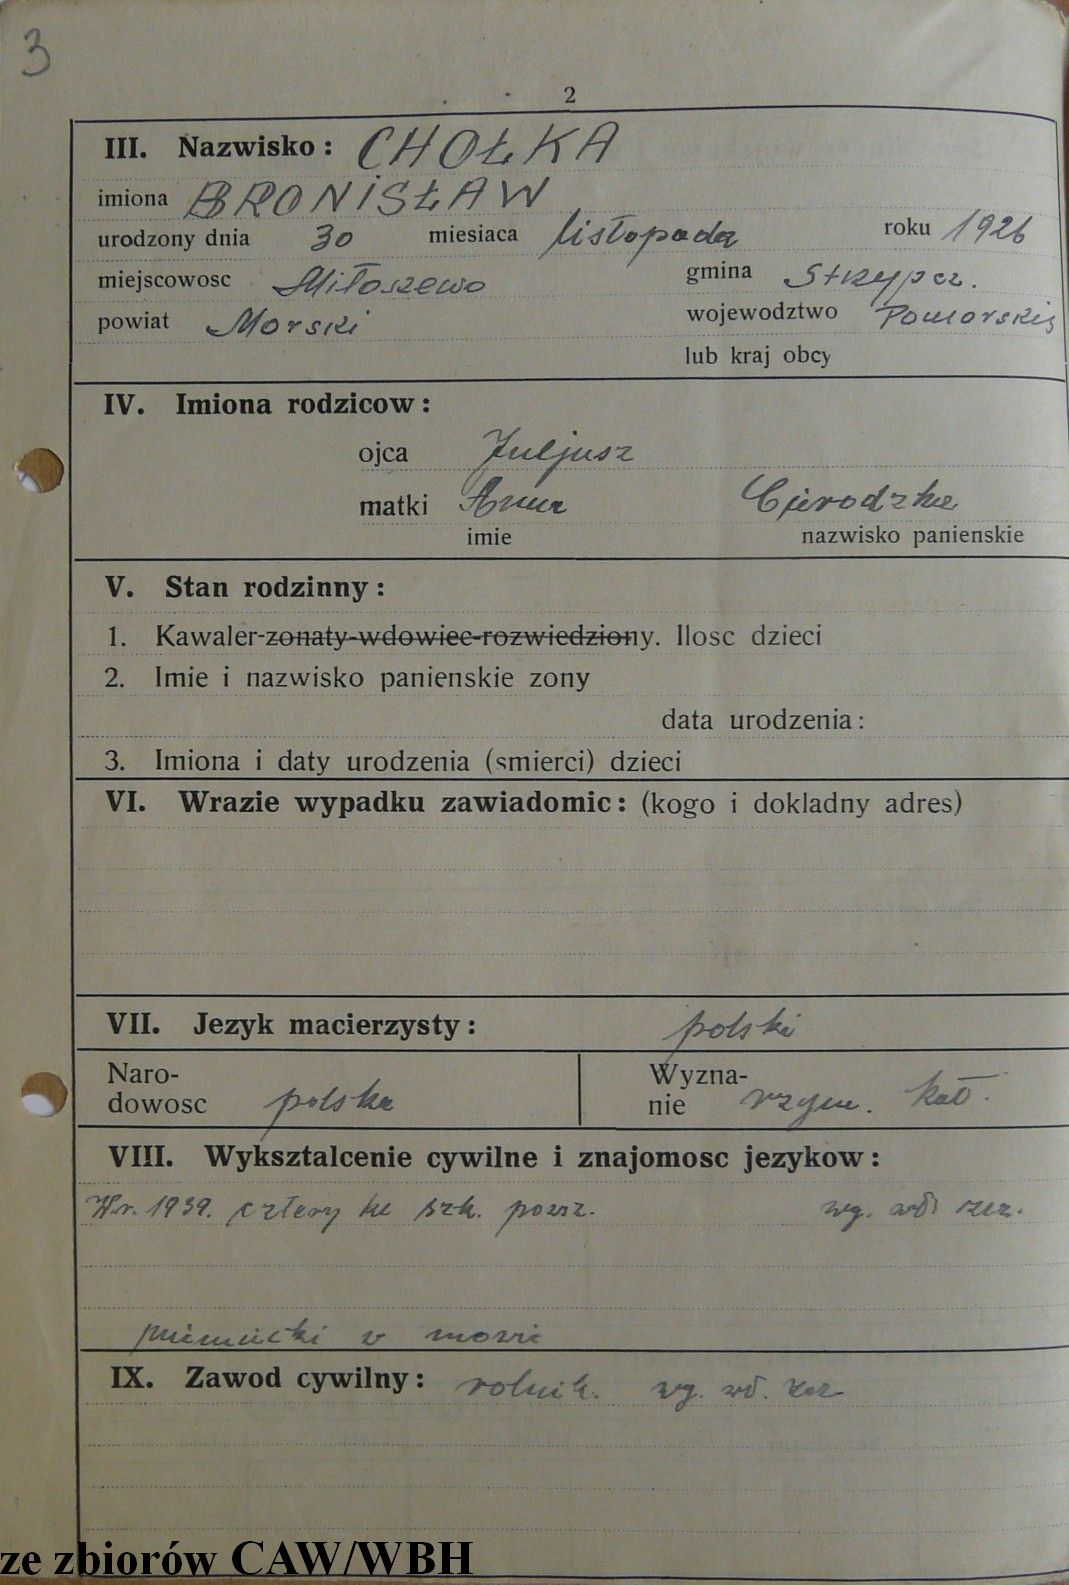 3
2
III. Nazwisko: CHOŁKA
imiona BRONISŁAW
urodzony dnia 30 miesiaca listopada roku 1926
miejscowosc Miłoszewo gmina Strzypcz.
powiat Morski wojewodztwo Pomorskie
lub kraj obcy
IV. Imiona rodzicow:
ojca Juljusz
matki Anna
imie nazwisko panienskie
V. Stan rodzinny:
1. Kawaler-zonaty-wdowiec-rozwiedziony. Ilosc dzieci
2. Imie i nazwisko panienskie zony
data urodzenia:
3. Imiona i daty urodzenia (smierci) dzieci
VI. Wrazie wypadku zawiadomic: (kogo i dokladny adres)
VII. Jezyk macierzysty: polski
Naro-
dowosc polska
Wyzna-
nie rzym. kat.
VIII. Wyksztalcenie cywilne i znajomosc jezykow:
W r. 1939. cztery kl szk. powsz. wg.
niemiecki w mowie
IX. Zawod cywilny: rolnik. wg.
ze zbiorów CAW/WBH